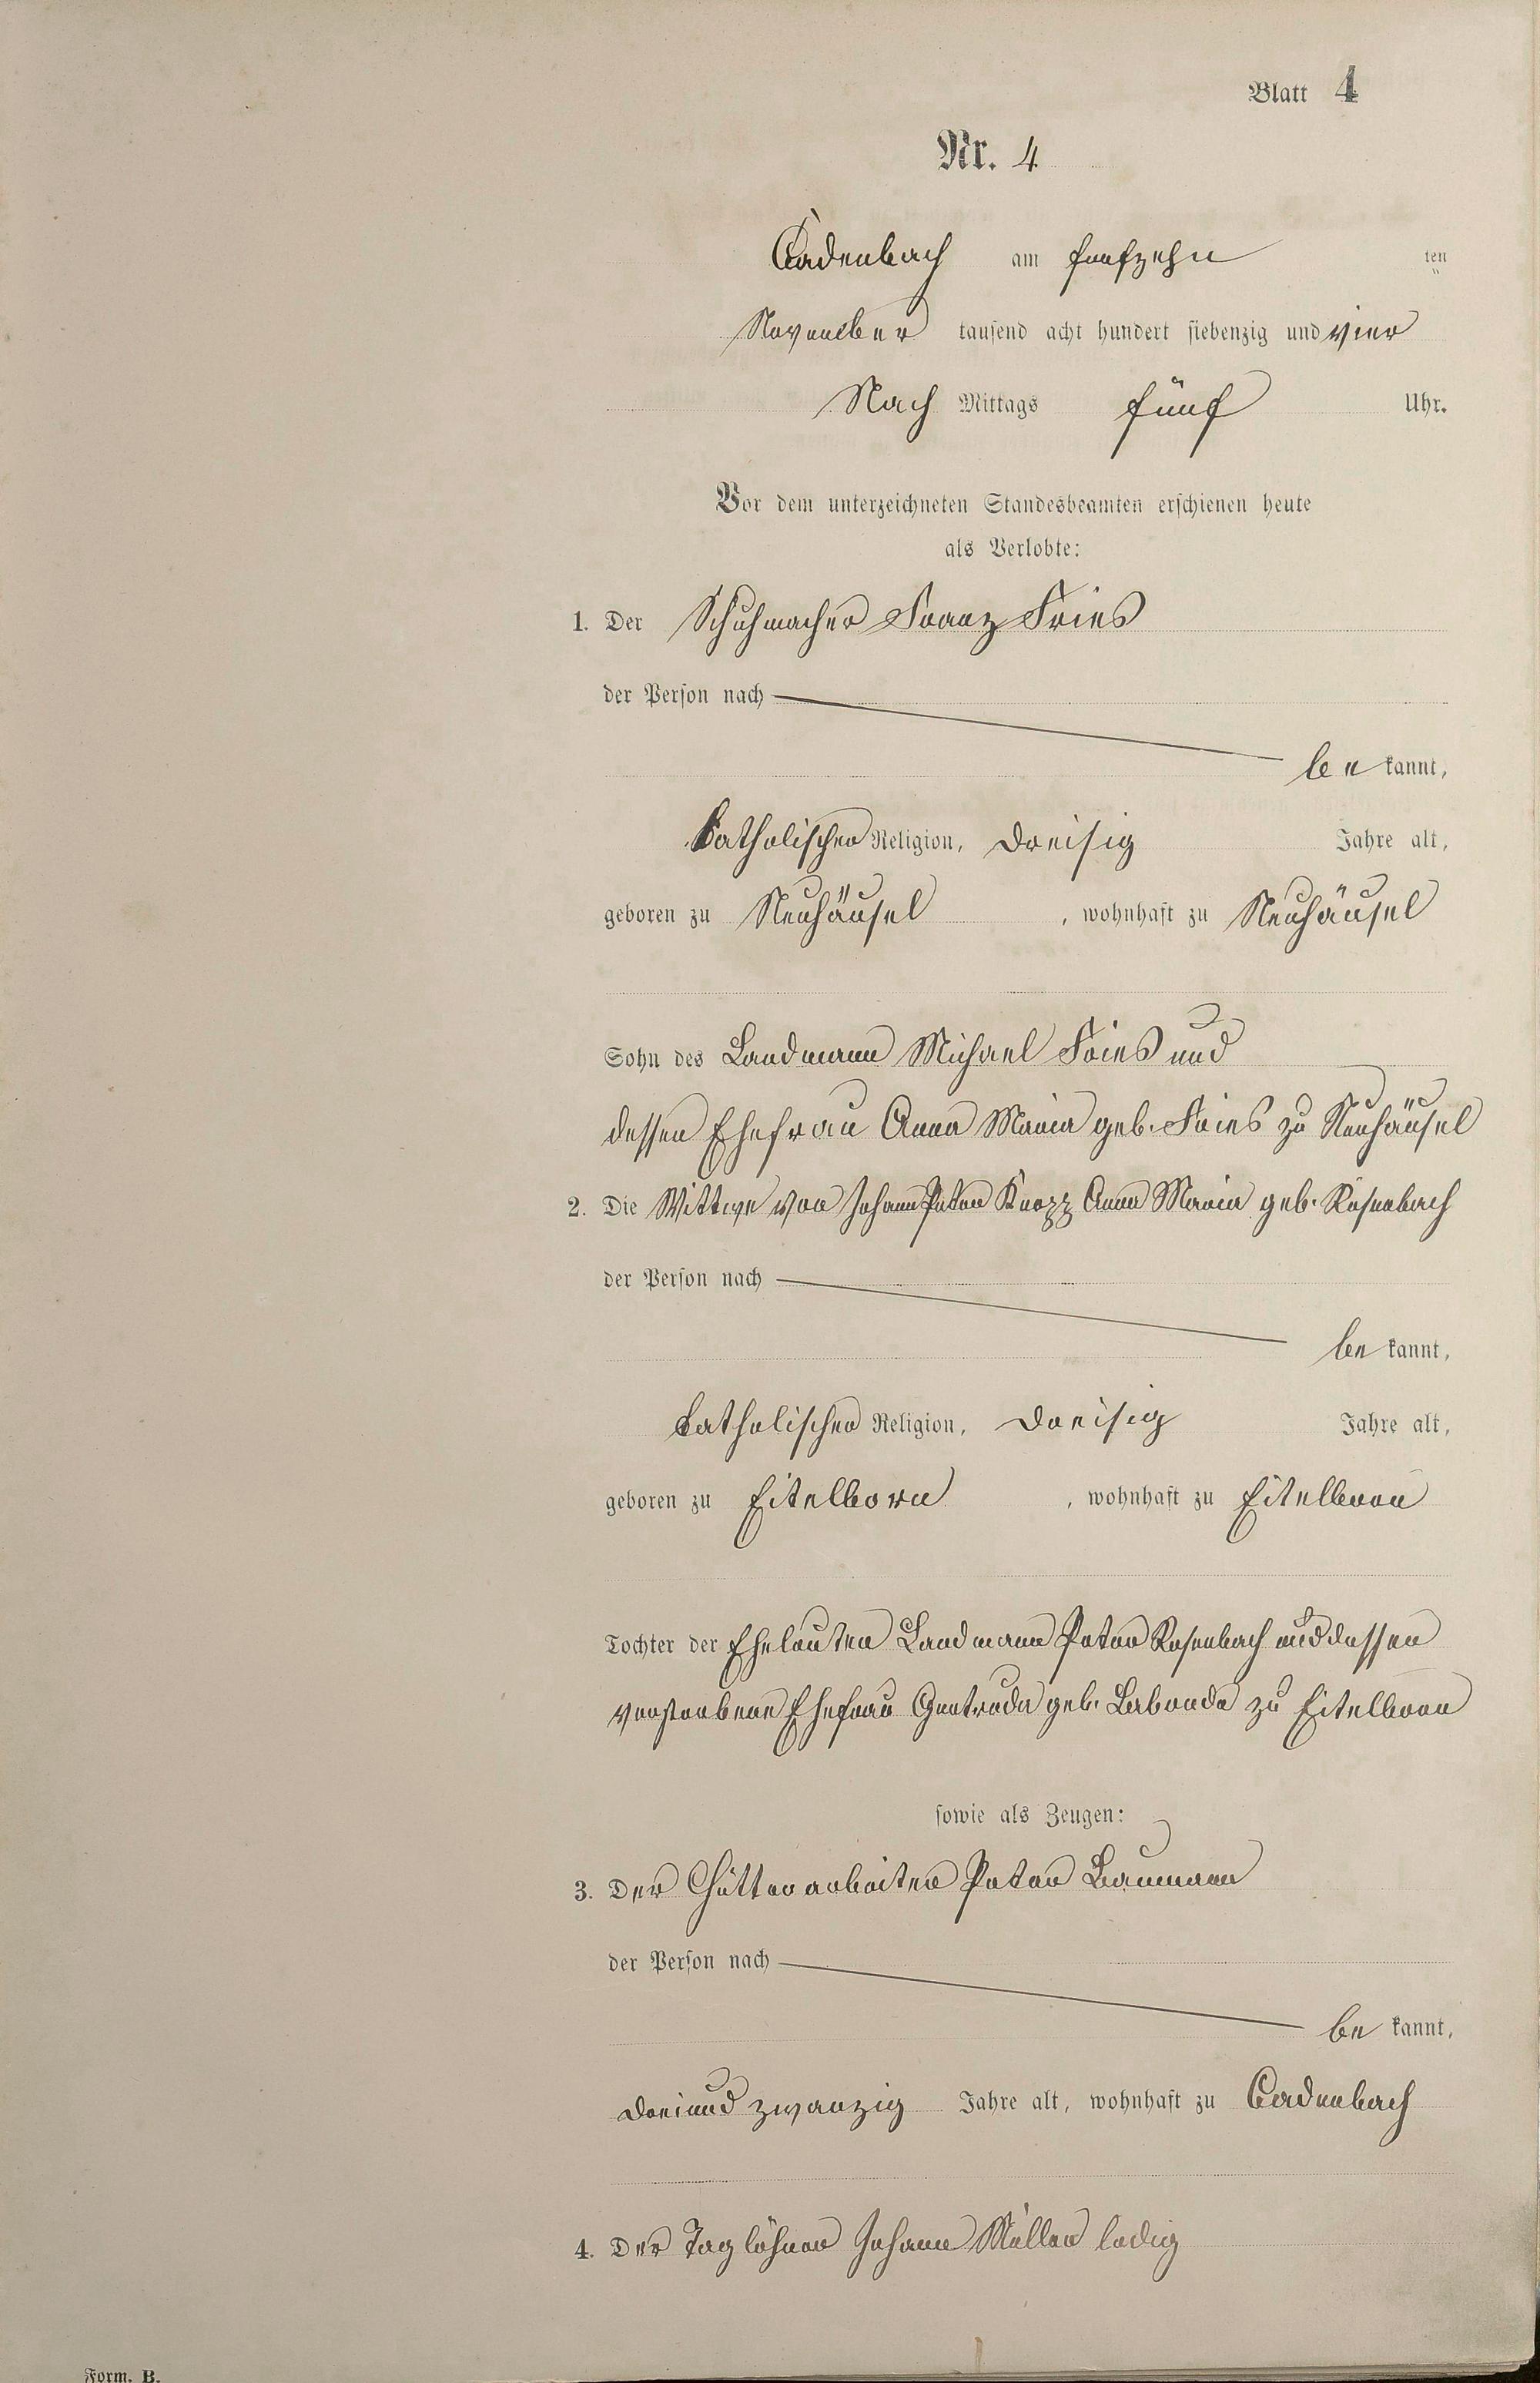 Blatt 4
Nr. 4
Cadenbach am fünfzehn ten
November tausend acht hundert siebenzig und vier
Nach Mittags fünf Uhr.
Vor dem unterzeichneten Standesbeamten erschienen heute
als Verlobte:
1. Der Schuhmacher Franz Fries
der Person nach
be kannt,
katholischer Religion, dreisig Jahre alt,
geboren zu Neuhäusel, wohnhaft zu Neuhäusel
Sohn des Landmann Michael Fries und
dessen Ehefrau Anna Maria geb. Fries zu Neuhäusel
2. Die Wittwe von Johann Peter Knopp Anna Maria geb. Rosenbach
der Person nach
be kannt,
katholischer Religion, dreisig Jahre alt,
geboren zu Eitelborn, wohnhaft zu Eitelborn
Tochter der Eheleuten Landmann Peter Rosenbach und dessen
verstorbene Ehefrau Gertruda geb. Labonde zu Eitelborn
sowie als Zeugen:
3. Der Hüttenarbeiter Peter Baumann
der Person nach
be kannt,
dreiund zwanzig Jahre alt, wohnhaft zu Cadenbach
4. Der Taglöhner Johann Müller ledig
Form. B.